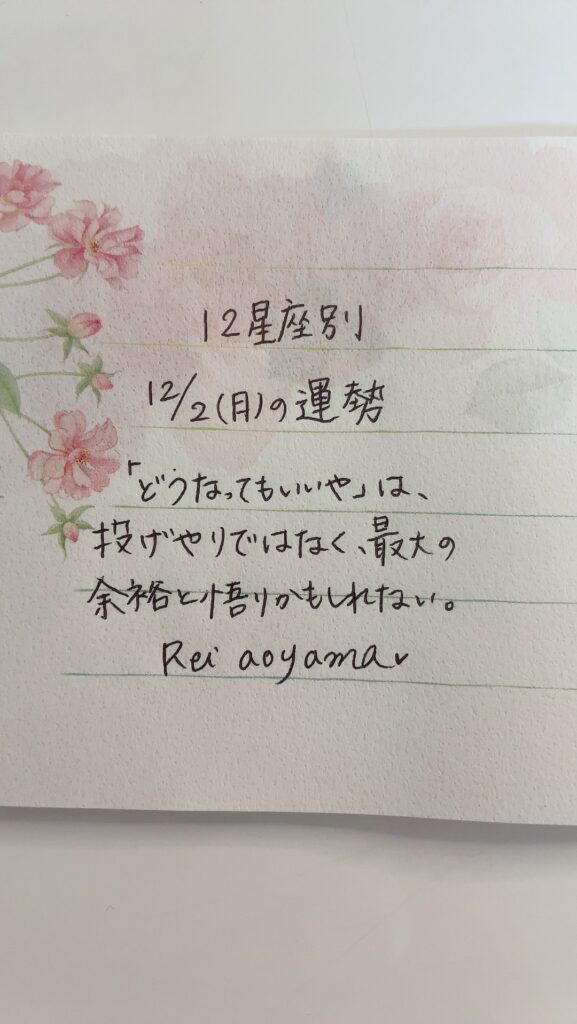 12星座別
12/2(月)の運勢
「どうなってもいいや」は、
投げやりではなく、最大の
余裕と悟りかもしれない。
Rei aoyama